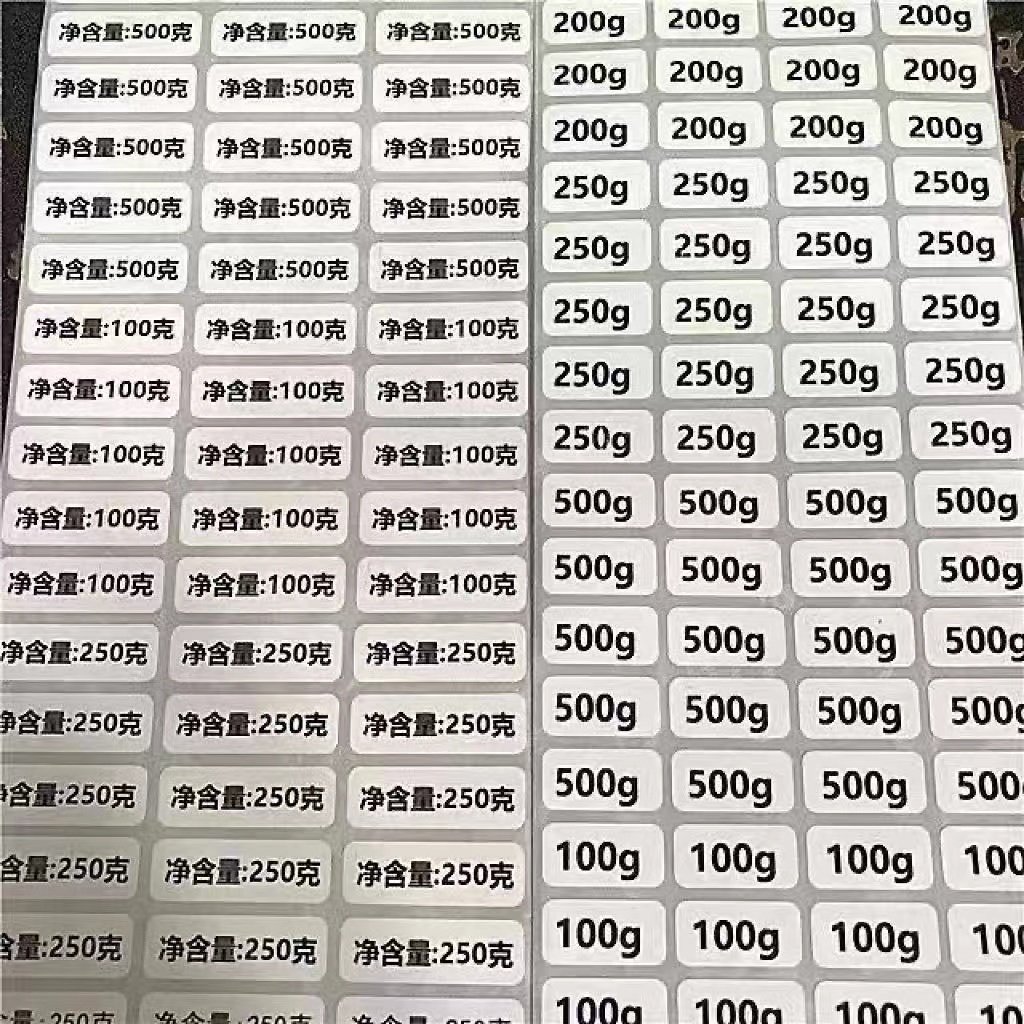 净含量:500克 净含量:500克 净含量:500克
净含量:500克 净含量:500克 净含量:500克
净含量:500克 净含量:500克 净含量:500克
净含量:500克 净含量:500克 净含量:500克
净含量:500克 净含量:500克 净含量:500克
净含量:100克 净含量:100克 净含量:100克
净含量:100克 净含量:100克 净含量:100克
净含量:100克 净含量:100克 净含量:100克
净含量:100克 净含量:100克 净含量:100克
净含量:100克 净含量:100克 净含量:100克
净含量:250克 净含量:250克 净含量:250克
净含量:250克 净含量:250克 净含量:250克
净含量:250克 净含量:250克 净含量:250克
含量:250克 净含量:250克 净含量:250克
含量:250克 净含量:250克 净含量:250克
量:250克 净含量:250克 净含量:250克
200g 200g 200g 200g
200g 200g 200g 200g
200g 200g 200g 200g
250g 250g 250g 250g
250g 250g 250g 250g
250g 250g 250g 250g
250g 250g 250g 250g
250g 250g 250g 250g
500g 500g 500g 500g
500g 500g 500g 500g
500g 500g 500g 500g
500g 500g 500g 500g
500g 500g 500g 500
100g 100g 100g 100
100g 100g 100g 100
100g 100g 100g 10